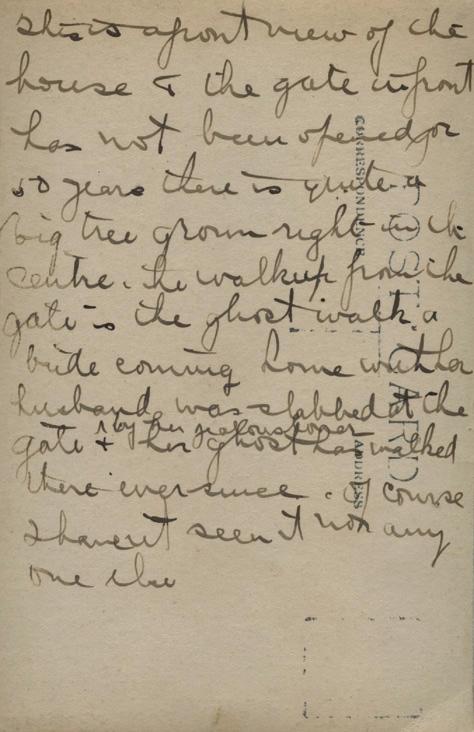 This is a front view of the
house & the gate in front
has not been opened for
50 years there is quite a
big tree grown right in the
centre. the walk up from the
gate is the ghost walk a
bride coming home with her
husband was stabbed at the
by her jealous lover
gate & her ghost has walked
there ever since. of course
I havent seen it nor any
one else
CORRESPONDENCE
POST CARD
ADDRESS